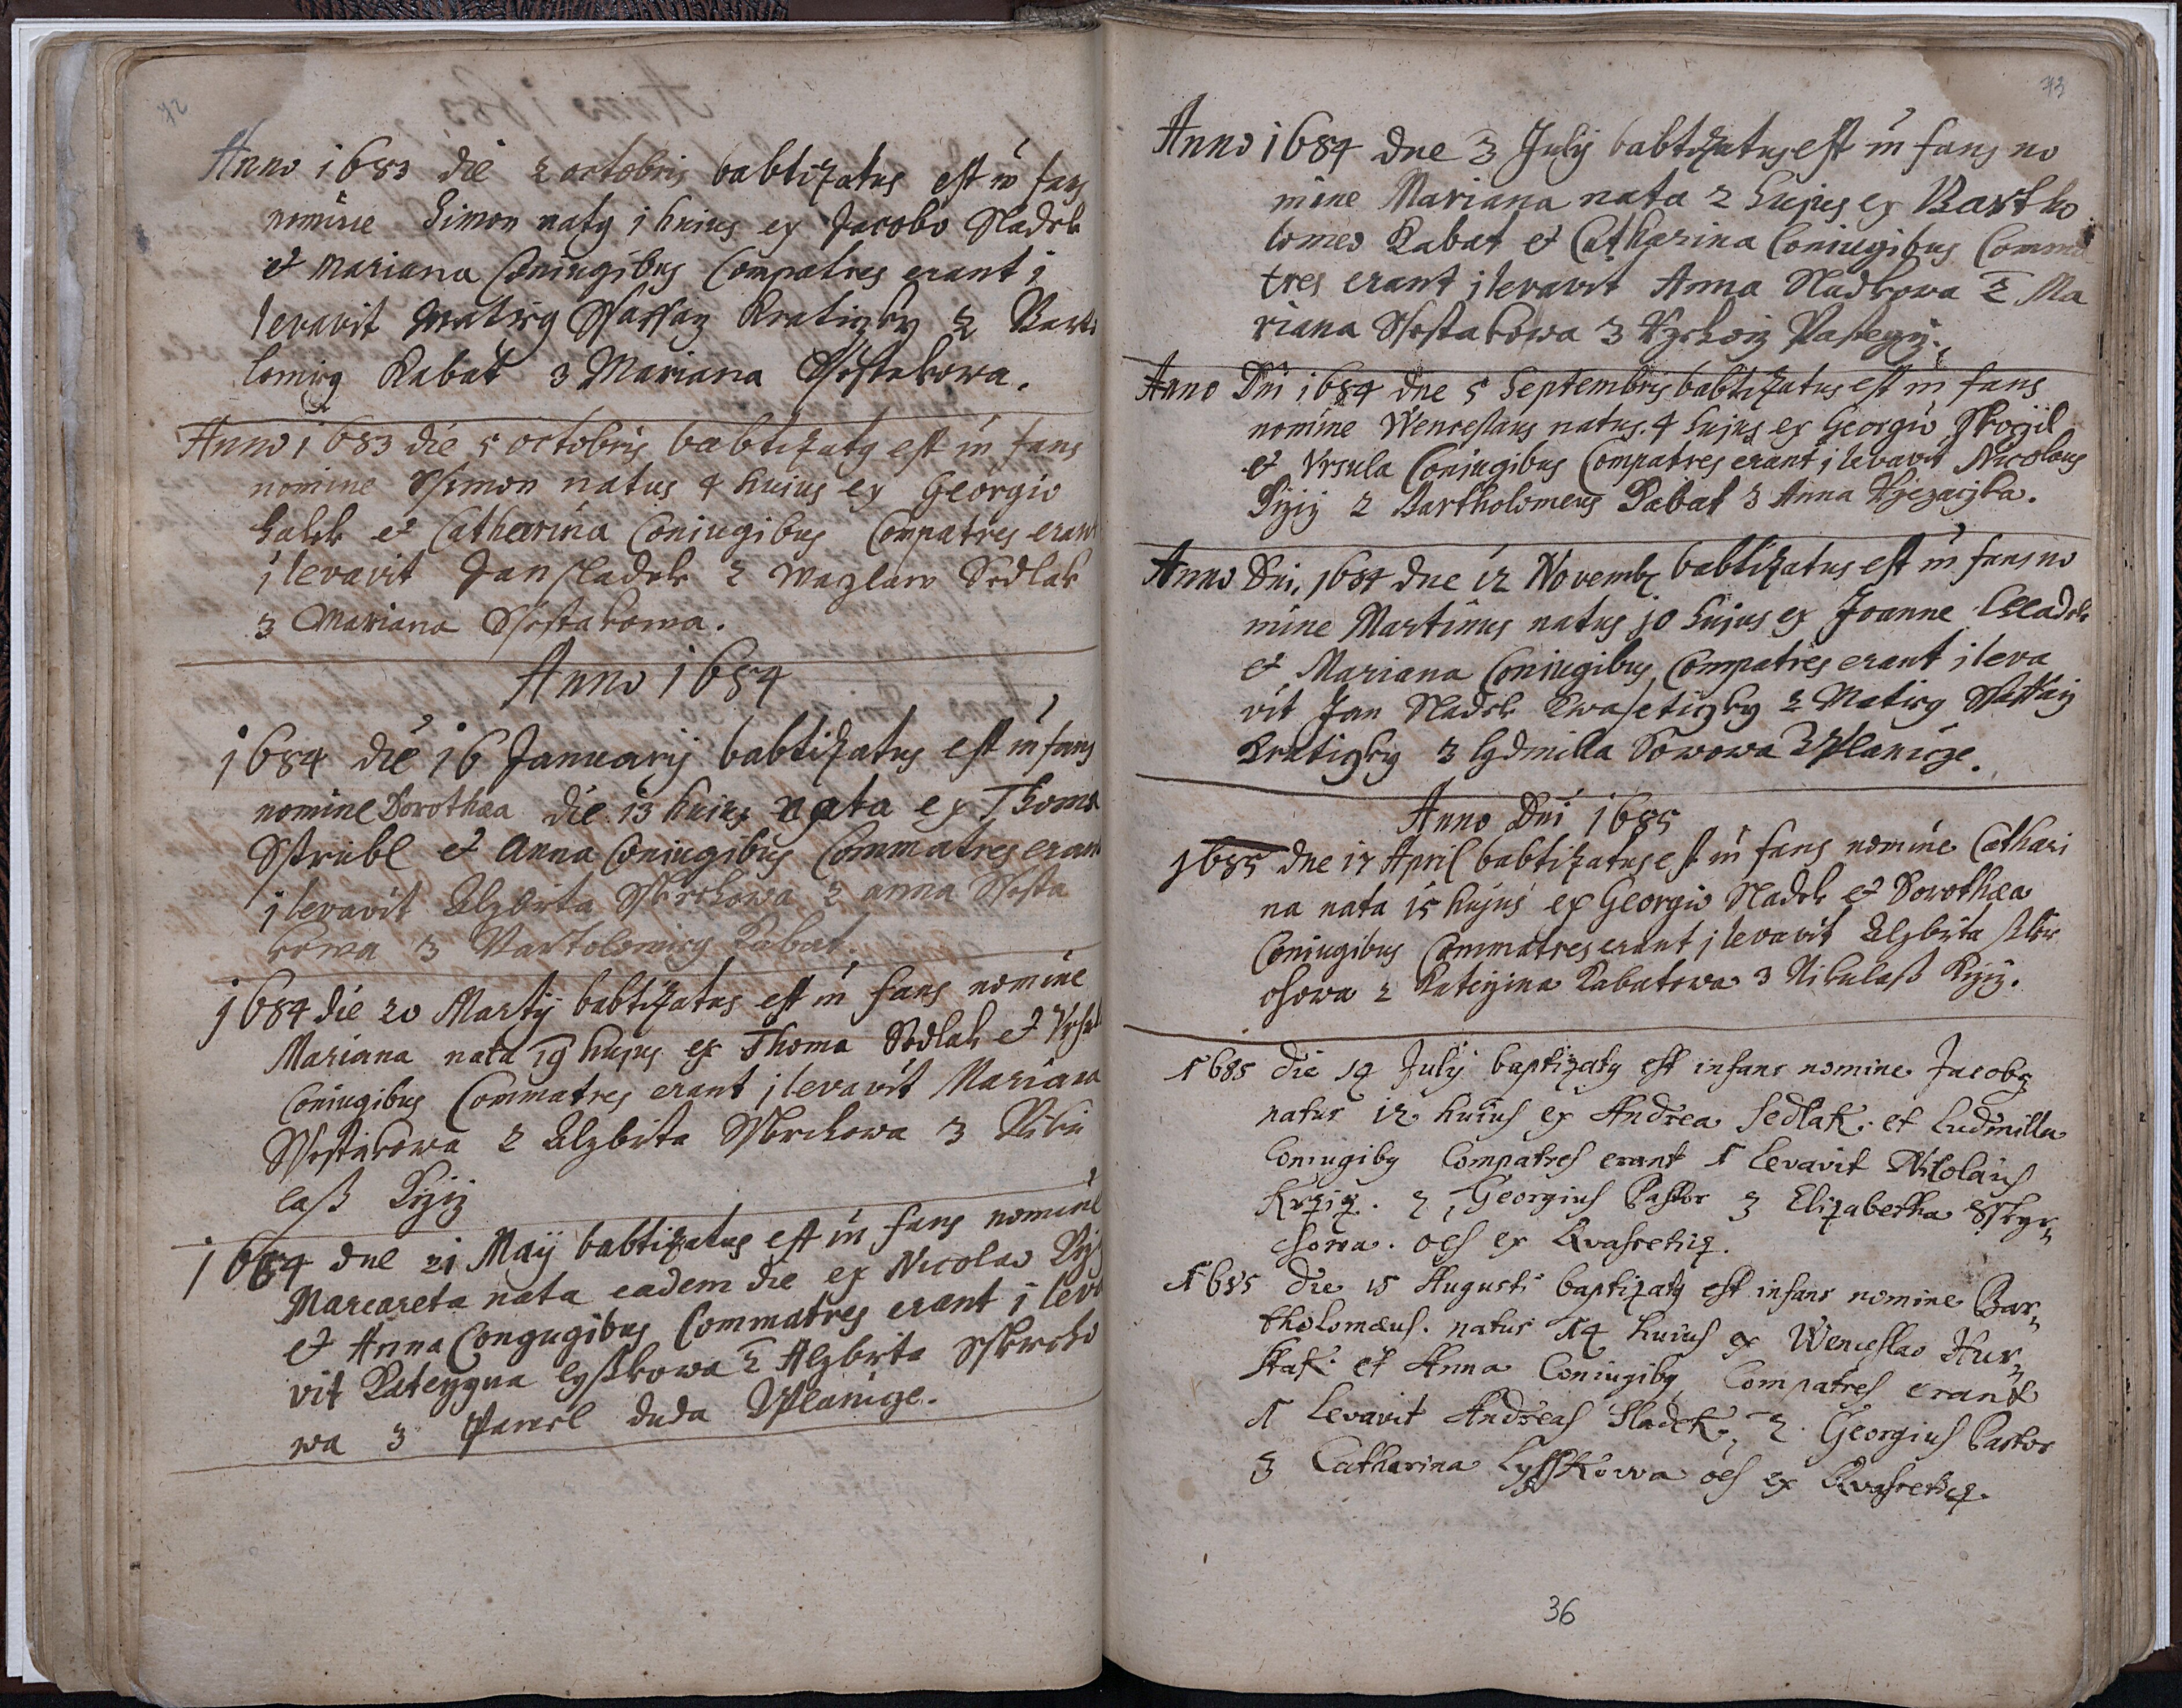 72
Anno 1683 die 2 octobris babtizatus est in fans
nomine Simon natg 1 huius ex Jacobo Sladek
et Mariana Coniugibus Compatres erant 1
levavit Matirg Kratizky 2 Barto
lomirg Kabat 3 Mariana Ssestakowa.
Anno 1683 die 5 octobris babtizatg est in fans
nomine Ssimon natus 4 huius ex Georgio
et Catharina Coniugibus Compatres erant
1 levavit Jan sladek 2 Wazlaw Sedlak
3 Mariana Ssestakowa.
Anno 1684
1684 die 16 Januarij babtizatus est in fans
nomine Dorothea die 13 huius nata ex Thoma
Sstrubl et Anna Coniugibus Commatres erant
1 levavit Alzbieta 2 anna Ssesta
kowa 3 Bartolomirg Kabat.
1684 die 20 Martij babtizatus est in fans nomine
Mariana nata 19 hujus ex Thoma Sedlak et
Coniugibus Commatres erant 1 levavit Mariana
Ssestakowa 2 Alzbieta 3 Niku
laß
1684 dne 21 Maij babtizatus est in fans nomine
Marcareta nata eadem die ex Nicolao
et Anna Congugibus Commatres erant 1 leva
vit Kateyyna lyßkowa 2 Alzbieta
wa 3 Pawel duda Zplanicze.
73
Anno 1684 dne 3 Julij babtizatus est in fans no
mine Mariana nata 2 hujus ex Bartho
lomeo Kabat et Catharina Coniugibus Comma
tres erant 1 levavit Anna Sladkowa 2 Ma
riana Ssestakowa 3
Anno Dni 1684 dne 5 Septembris babtizatus est in fans
nomine Wenceslaus natus 4 hujus ex Georgio
et Vrsula Coniugibus Compatres erant 1 levavit Nicolaus
2 Bartholomeus Kabat 3 Anna
Anno Dni. 1684 dne 12 Novemb babtizatus est in fans no
mine Martinus natus 10 hujus ex Joanne
et Mariana Coniugibus Compatres erant 1 leva
vit Jan Sladek Kwasetizky 2 Matirg
Kratizky 3 lydmilla Sowowa Zplanicze.
Anno Dni 1685
1685 dne 17 April babtizatus est in fans nomine Cathari
na nata 15 hujus ex Georgio Sladek et Dorothea
Coniugibus Commatres erant 1 levavit Alzbieta
2 Katizina Kabatowa 3 Nikulaß
1685 die 14 Julij baptizatg est infans nomine Jacobg
natus 12 huius ex Andrea Sedlak. et Ludmilla
Coniugibg Compatres erant 1 Levavit Nicolaus
Krziz. 2, Georgius Pastor 3 Elizabetha Sskyr„
chowa. oes ex Kvassetiz.
1685 Die 15 Augusti baptizatg est infans nomine Bar„
tholomæus. natus 14 huius ex Wenceslao
et Anna Coniugibg Compatres erant
1 Levavit Andreas Sladek., 2. Georgius Pastor
3 Catharina Lysskowa oes ex Kvassetiz.
36